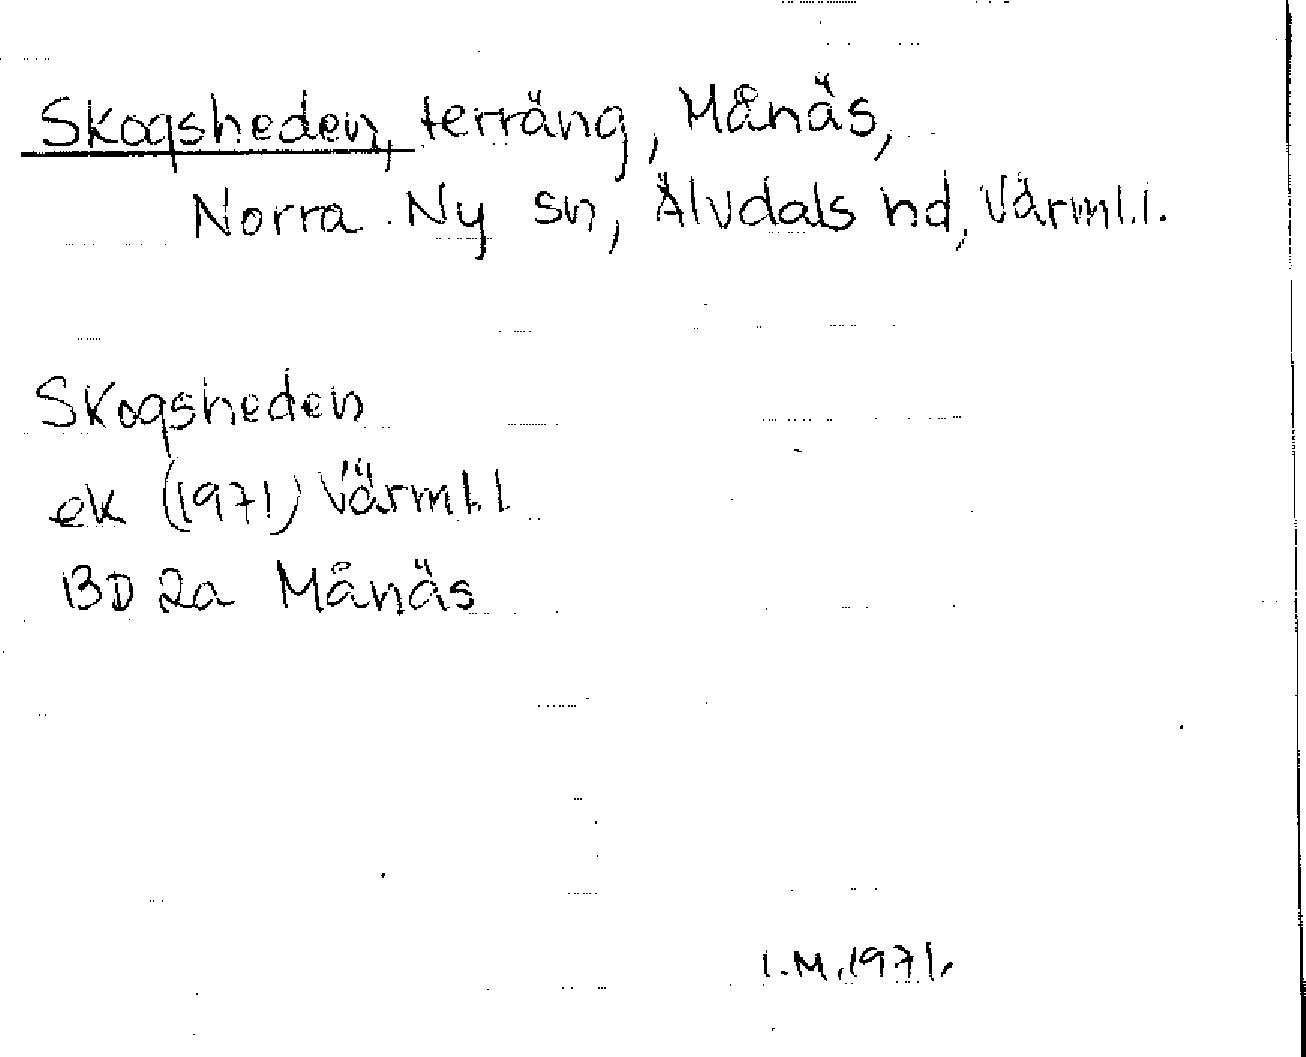 Skogsheden, terräng, Månäs,
Norra Ny sn, Älvdals hd, Värml.l.
Skogsheden
ek (1971) Värml.l
BD 2a Månäs
I.M. 1971.